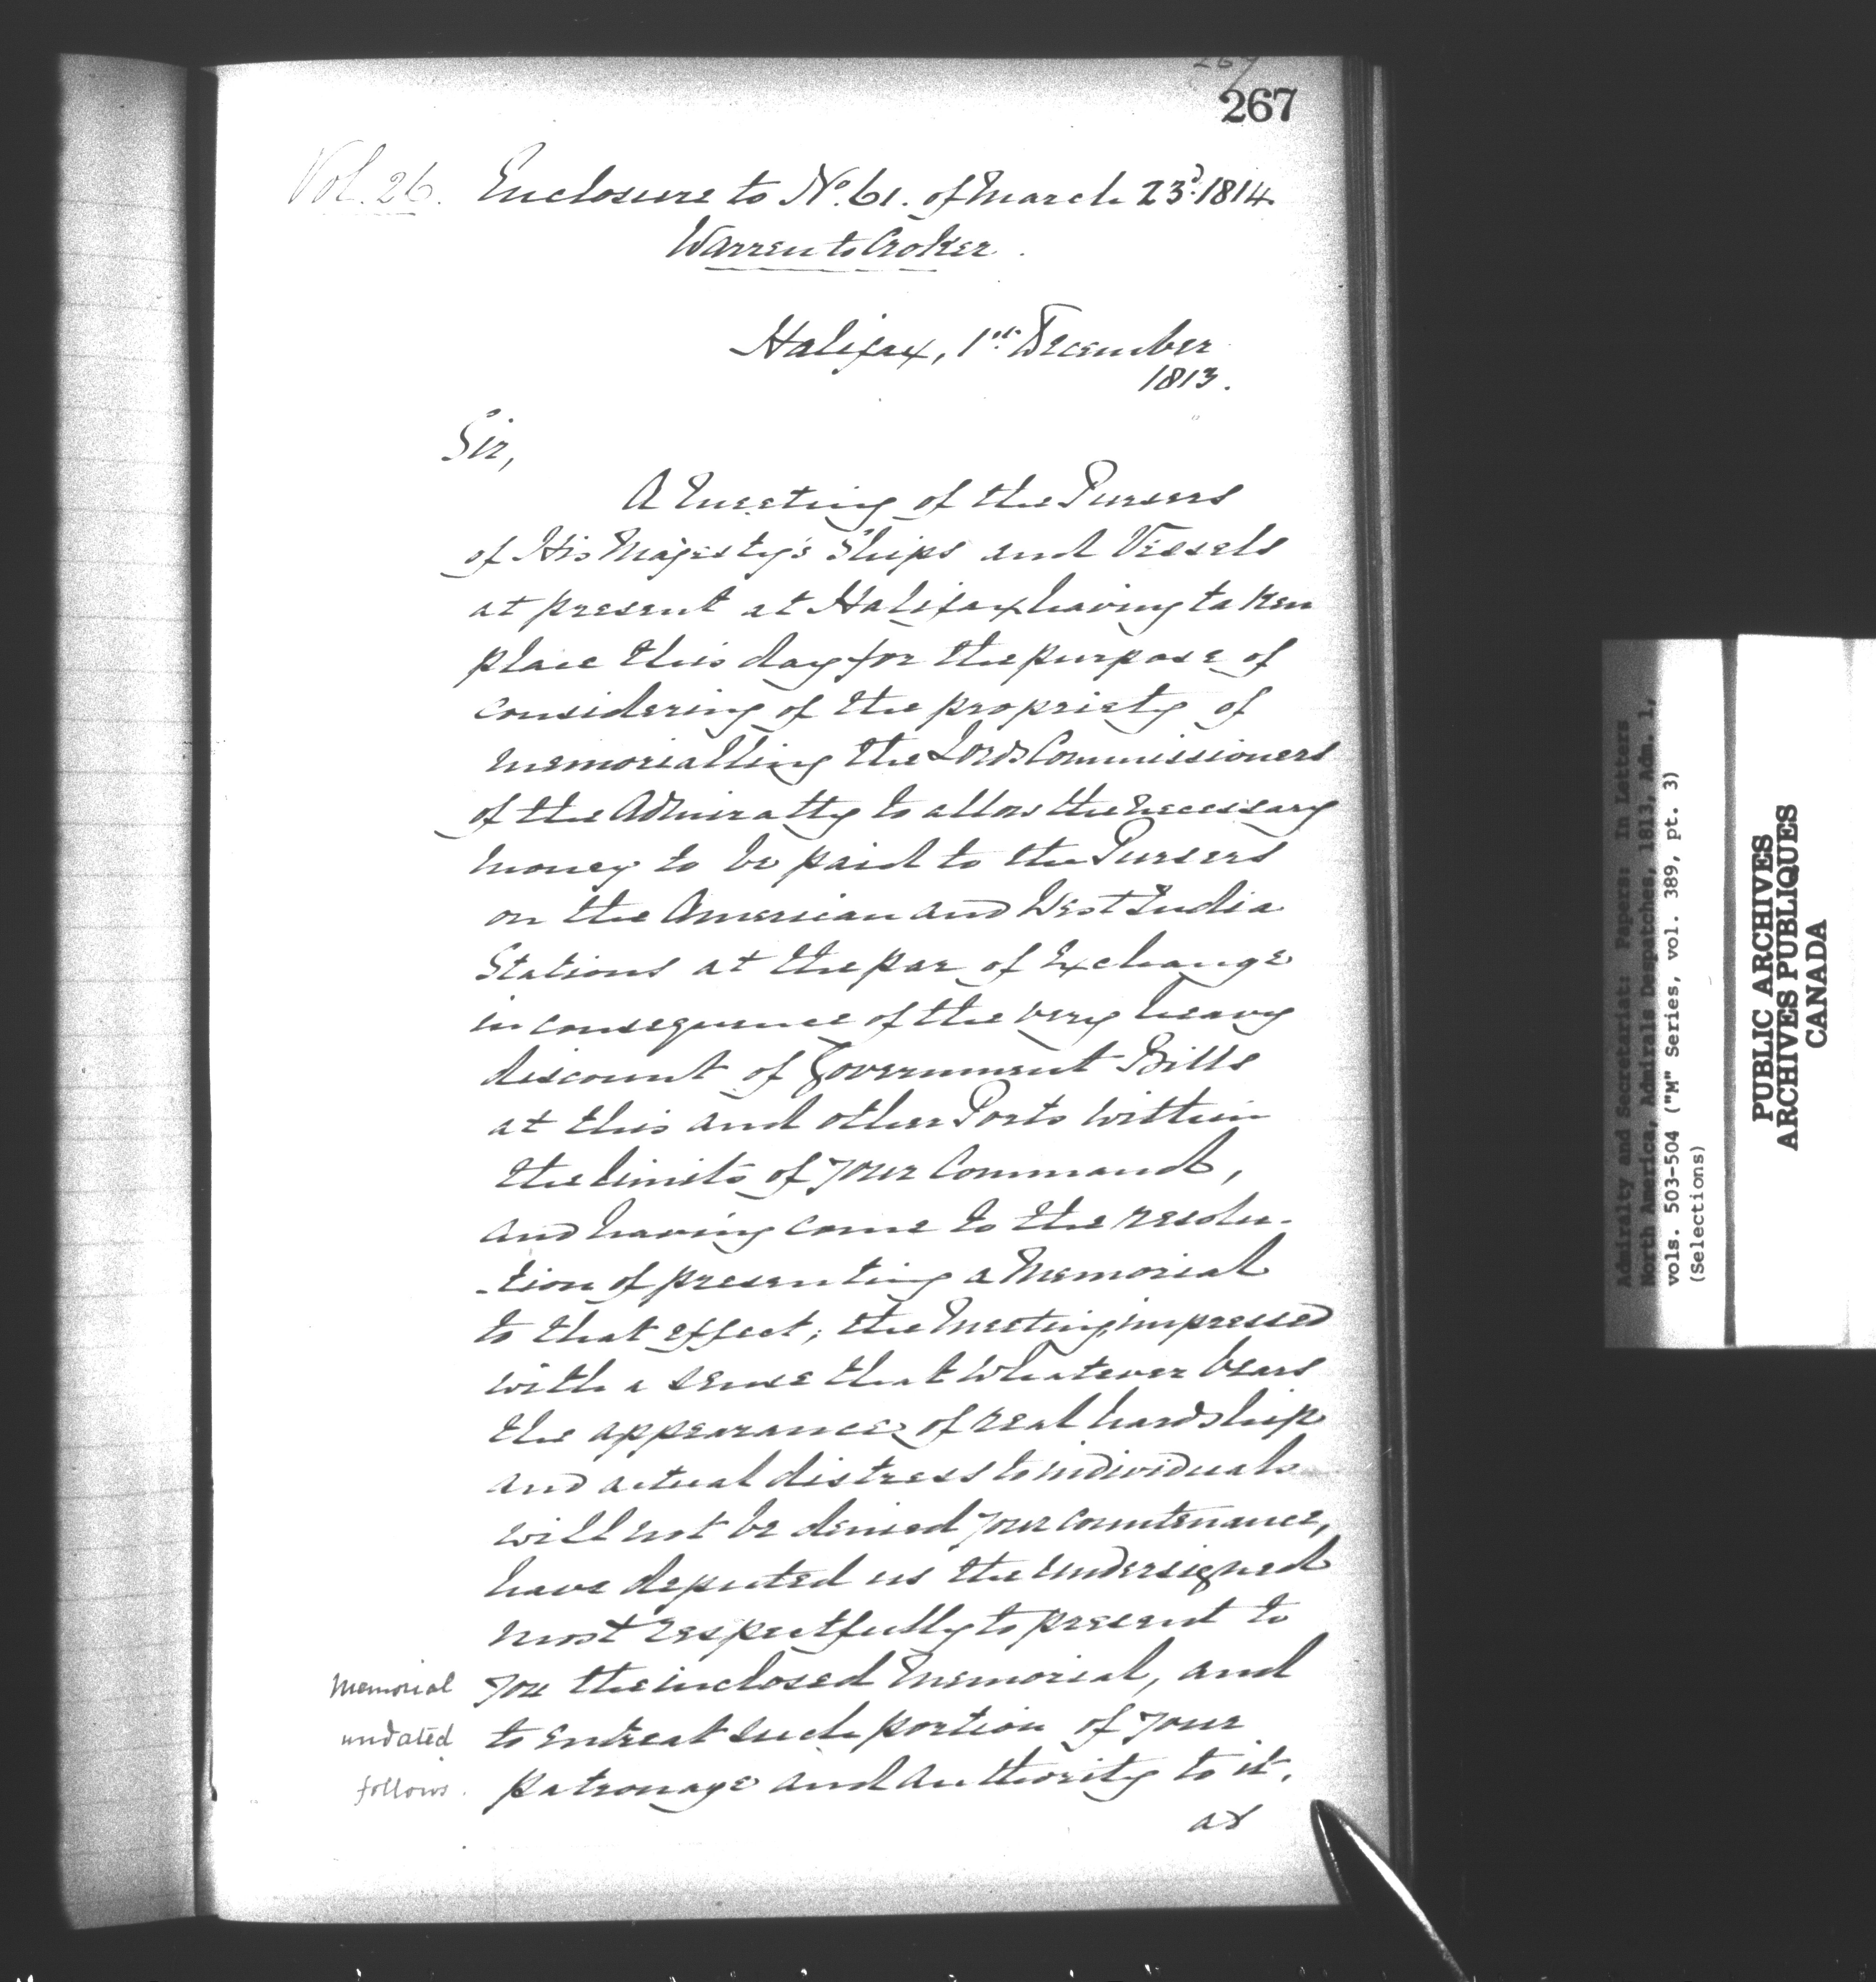 267
267
Vol. 26. Enclosure to No. 61. of March 23d. 1814.
Warren to Croker.
Halifax, 1st. December
1813.
Sir,
A Meeting of the Pursers
of His Majesty's Ships and Vessels
at present at Halifax having taken
place this day for the purpose of
considering of the propriety of
memorialling the Lords Commissioners
of the Admiralty to allow the necessary
money to be paid to the Pursers
on the American and West India
Stations at the par of Exchange
in consequence of the very heavy
discount of Government Bills
at this and other Ports within
the limits of your Command,
and having come to the resolu-
-tion of presenting a Memorial
to that effect; the Meeting, impressed
with a sense that whatever bears
the appearance of real hardship
and actual distress to individuals
will not be denied your countenance,
have deputed us the undersigned
most respectfully to present to
you the inclosed Memorial, and
to entreat such portion of your
patronage and authority to it,
as
Memorial
undated
follows.
Admiralty and Secretariat: Papers: In Letters
North America, Admirals Despatches, 1813, Adm. 1,
vols. 503-504 ("M" Series, vol. 389, pt. 3)
(Selections)
PUBLIC ARCHIVES
ARCHIVES PUBLIQUES
CANADA